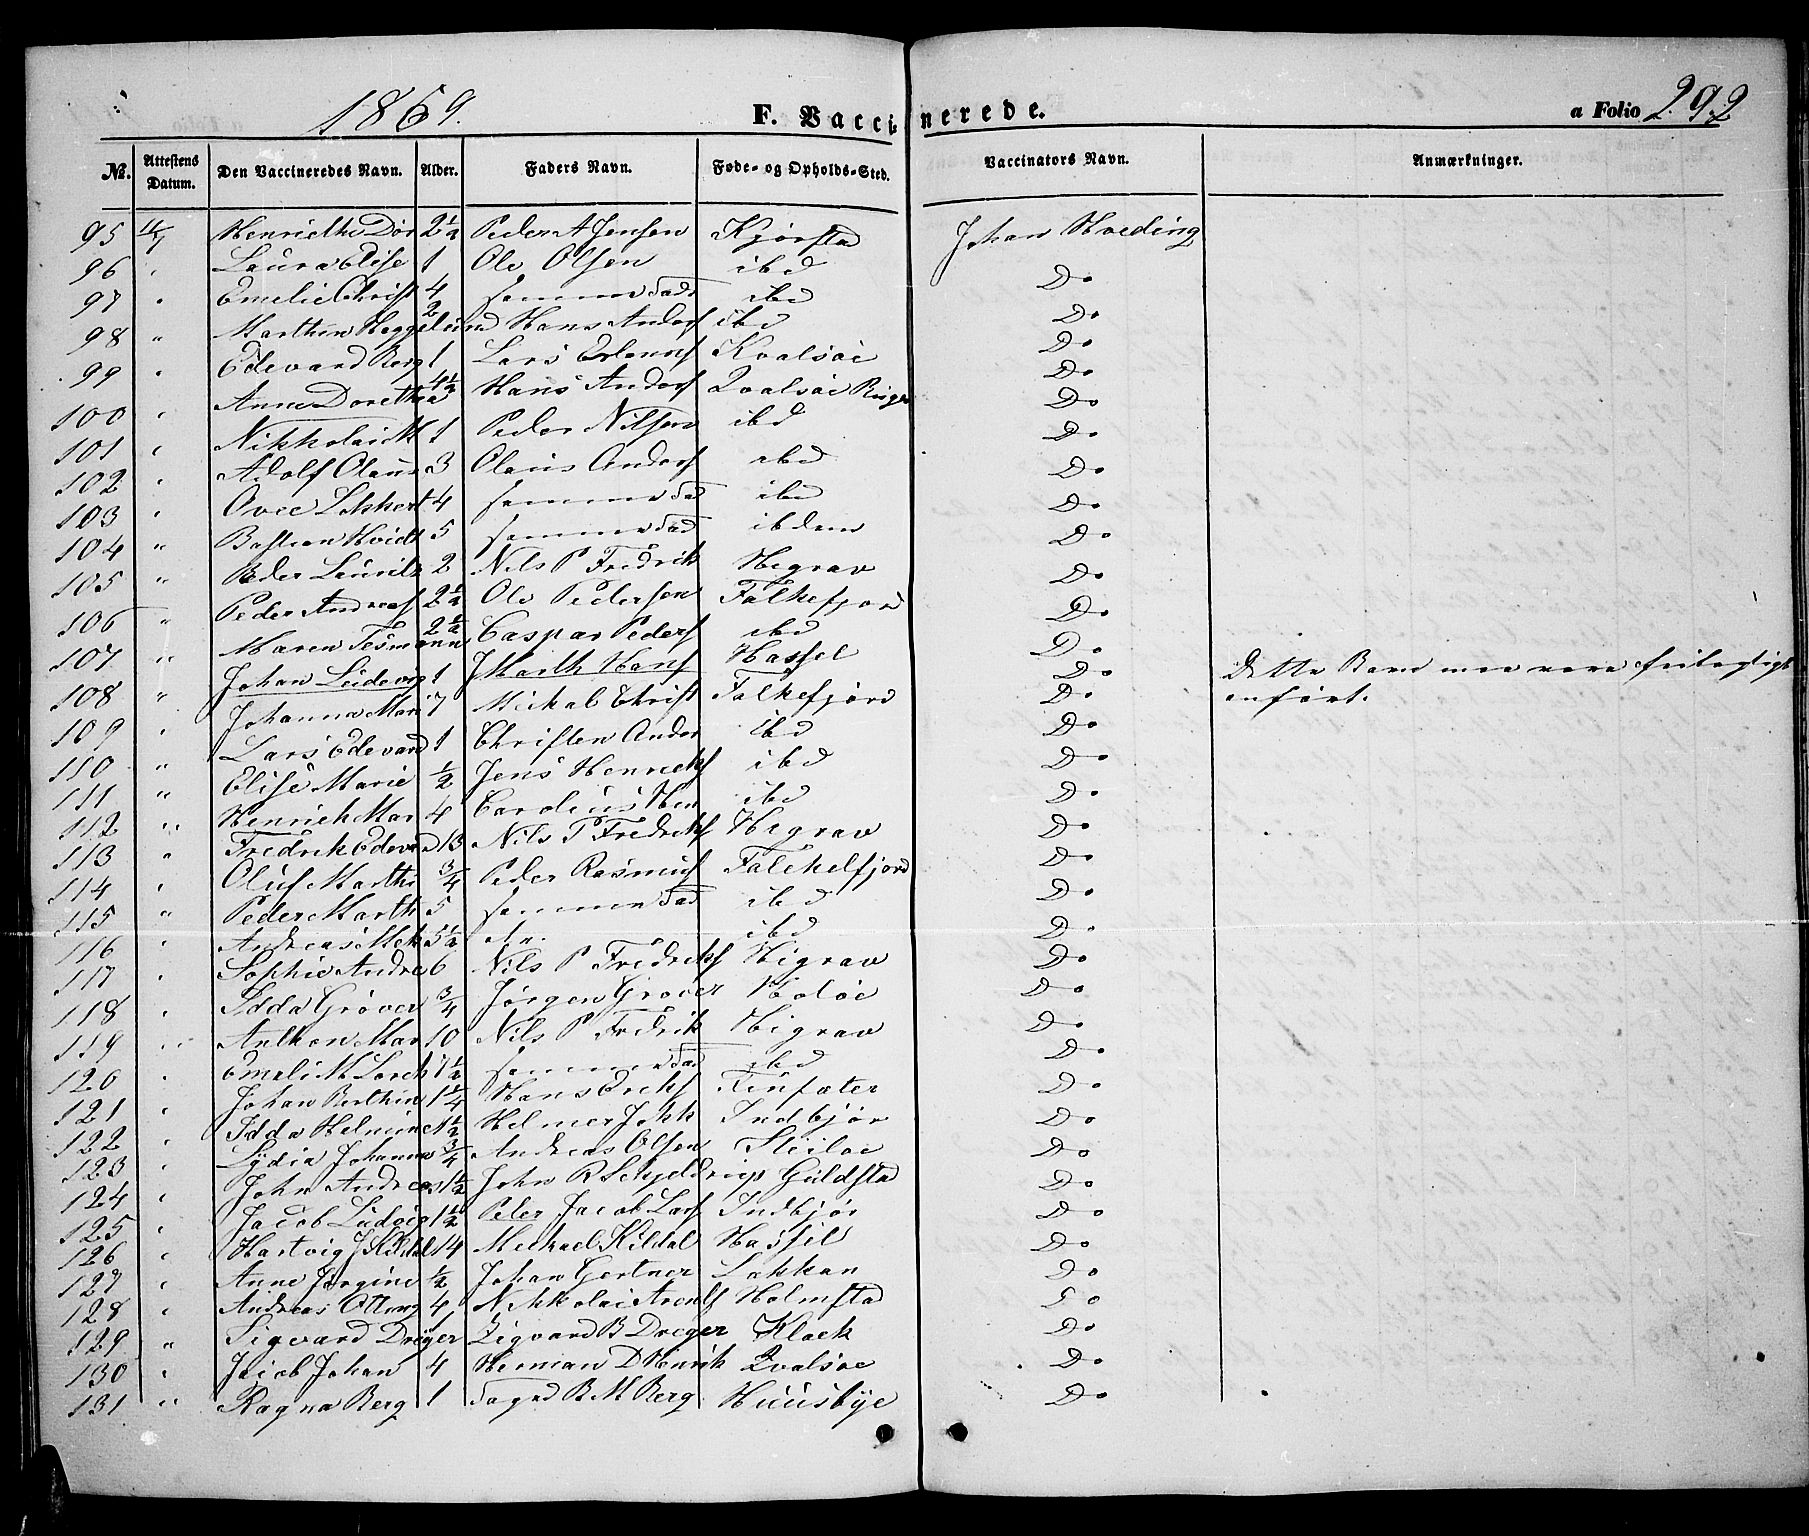 1869. F. Vaccinerede. a Folio 292
No. Attestens Datum. Den Vaccineredes Navn. Alder. Faders Navn. Føde- og Opholds-Sted. Vaccinators Navn. Anmærkninger.
95 Henriethe Dor 2½ Peder A Jensen Kjørstad Johan Hveding
96 " Laura Elise 1 Ole Olsen ibd Do
97 " Emelie Christ 4 samme Fad ibd Do
98 " Marthin Heggelund 2 Hans Anders ibd Do
99 " Edevard Berg 1 Lars Erlenns Kvalsøe Do
100 " Anne Dorethea 4½ Hans Anders Qvalsøe Ringe Do
101 " Nikkolai M 1 Peder Nilsen ibd Do
102 " Adolf Olaus 3 Olaus Anders ibd Do
103 " Ovee Ekkert 4 samme Fad ibd Do
104 " Bastian Hvidt 5 samme Fad ibdem Do
105 " Peder Lauritz 2 Nils P Fredrik Higrav Do
106 " Peder Andreas 2½ Ole Pedersen Falkefjord Do
107 " Maren Tesmann 2½ Caspar Peders ibd Do
108 " Johan Ludevig 1 J Marth Hans Hassel Do Dette Barn maa være feilagtigt anført.
109 " Johanna Mari 7 Mickal Christ Falkefjord Do
110 " Lars Edevard 1 Christen Ander ibd Do
111 " Elise Marie ½ Jens Henriks ibd Do
112 " Henrich Mar 4 Carolius Hen ibd Do
113 " Fredrik Edevard 13 Nils P Fredriks Higrav Do
114 " Oluf Marthi ¾ Peder Rasmus Falchelfjord Do
115 " Peder Marth 5 samme Fad ibd Do
116 " Andreas Mek 5½ ibd Do
117 " Sophie Andre 6 Nils P Fredriks Higrav Do
118 " Idda Grøver ¾ Jørgen Grøver Holøe Do
119 " Anthon Mar 10 Nils P Fredrik Higrav Do
120 " Emeli M Lorch 7½ samme Fad ibd Do
121 " Johan Berthin 1¼ Hans Eriks Finsæter Do
122 " Idda Helmine 1½ Helmer Jokk Indbjør Do
123 " Lydia Johanna ¾ Andreas Olsen Steiløe Do
124 " John Andreas 1½ John R Schjeldrup Guldstad Do
125 " Jacob Ludvig 1½ Peter Jacob Lars Indbjør Do
126 " Hartvig J Kildal 14 Mickael Kildal Hassel Do
127 " Anne Jørgine ½ Johan Gertner Lakkan Do
128 " Andreas Ottong 4 Nikkolai Arents Holmstad Do
129 " Sigvard Dreyer 1 Zigvard B Dreyer Klack Do
130 " Jacob Johan 4 Herman D Henrik Qvalsøe Do
131 " Ragna Berg 1 Fogd B M Berg Huusbye Do